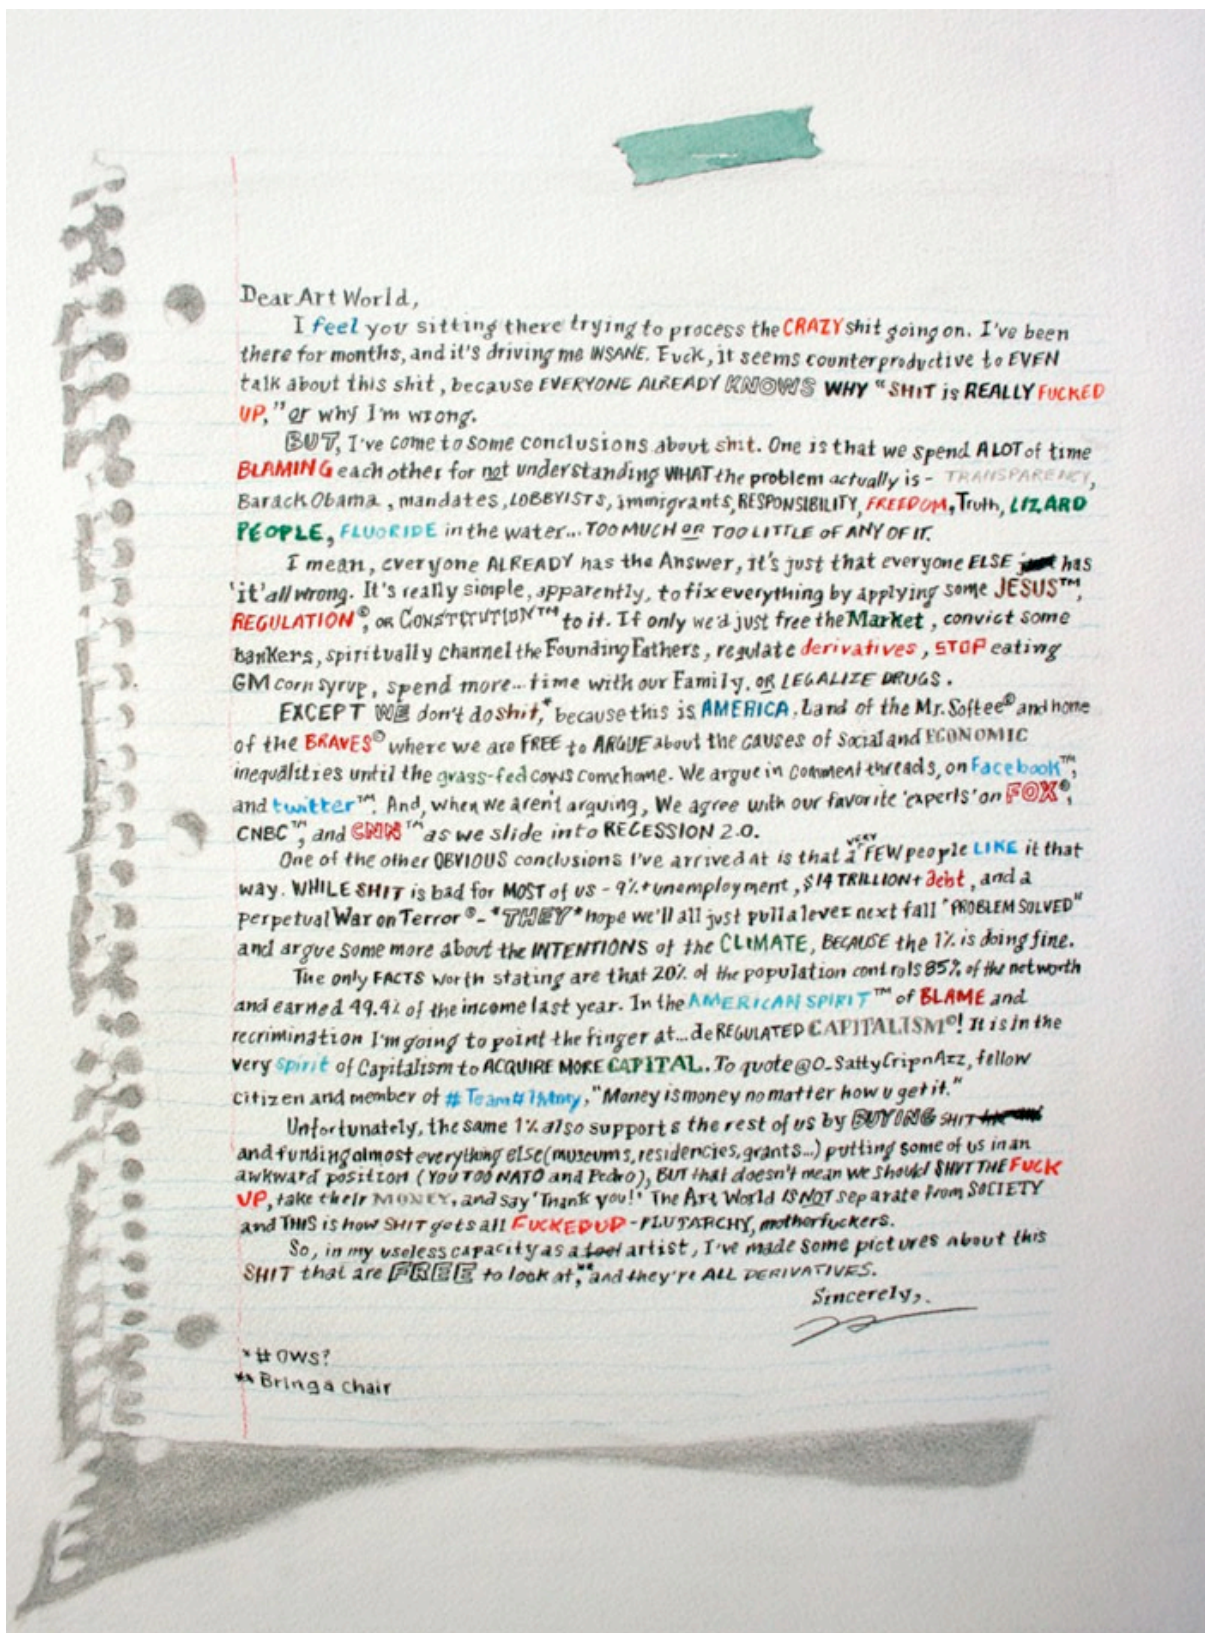 Dear Art World,
I feel you sitting there trying to process the CRAZY shit going on. I've been
there for months, and it's driving me INSANE. Fuck, it seems counterproductive to EVEN
talk about this shit, because EVERYONE ALREADY KNOWS WHY "SHIT is REALLY FUCKED
UP," or why I'm wrong.
BUT, I've come to some conclusions about shit. One is that we spend A LOT of time
BLAMING each other for not understanding WHAT the problem actually is - TRANSPARENCY,
Barack Obama, mandates, LOBBYISTS, immigrants, RESPONSIBILITY, FREEDOM, Truth, LIZARD
PEOPLE, FLUORIDE in the water... TOO MUCH OR TOO LITTLE OF ANY OF IT.
I mean, everyone ALREADY has the Answer, it's just that everyone ELSE just has
'it' all wrong. It's really simple, apparently, to fix everything by applying some JESUS™,
REGULATION®, OR CONSTITUTION™ to it. If only we'd just free the Market, convict some
bankers, spiritually channel the Founding Fathers, regulate derivatives, STOP eating
GM corn syrup, spend more... time with our Family, OR LEGALIZE DRUGS.
EXCEPT WE don't do shit,* because this is AMERICA. Land of the Mr. Softee® and home
of the BRAVES® where we are FREE to ARGUE about the causes of Social and ECONOMIC
inequalities until the grass-fed cows come home. We argue in comment threads, on Facebook™,
and twitter™. And, when we aren't arguing, We agree with our favorite 'experts' on FOX®,
CNBC™, and CNN™ as we slide into RECESSION 2.0.
One of the other OBVIOUS conclusions I've arrived at is that a VERY FEW people LIKE it that
way. WHILE SHIT is bad for MOST of us - 9%+ unemployment, $14 TRILLION+ debt, and a
perpetual War on Terror® - *THEY* hope we'll all just pull a lever next fall "PROBLEM SOLVED"
and argue some more about the INTENTIONS of the CLIMATE, BECAUSE the 1% is doing fine.
The only FACTS worth stating are that 20% of the population controls 85% of the networth
and earned 49.4% of the income last year. In the AMERICAN SPIRIT™ of BLAME and
recrimination I'm going to point the finger at... deREGULATED CAPITALISM®! It is in the
very spirit of Capitalism to ACQUIRE MORE CAPITAL. To quote @O_SattyCripnAzz, fellow
citizen and member of #Team#1Mmy, "Money is money no matter how u get it."
Unfortunately, the same 1% also supports the rest of us by BUYING SHIT
and funding almost everything else (museums, residencies, grants...) putting some of us in an
awkward position (YOU TOO NATO and Pedro), BUT that doesn't mean we should SHUT THE FUCK
UP, take their MONEY, and say 'Thank you!' The Art World IS NOT separate from SOCIETY
and THIS is how SHIT gets all FUCKED UP - PLUTARCHY, motherfuckers.
So, in my useless capacity as a tool artist, I've made some pictures about this
SHIT that are FREE to look at,** and they're ALL DERIVATIVES.
Sincerely,
*#OWS?
**Bring a chair